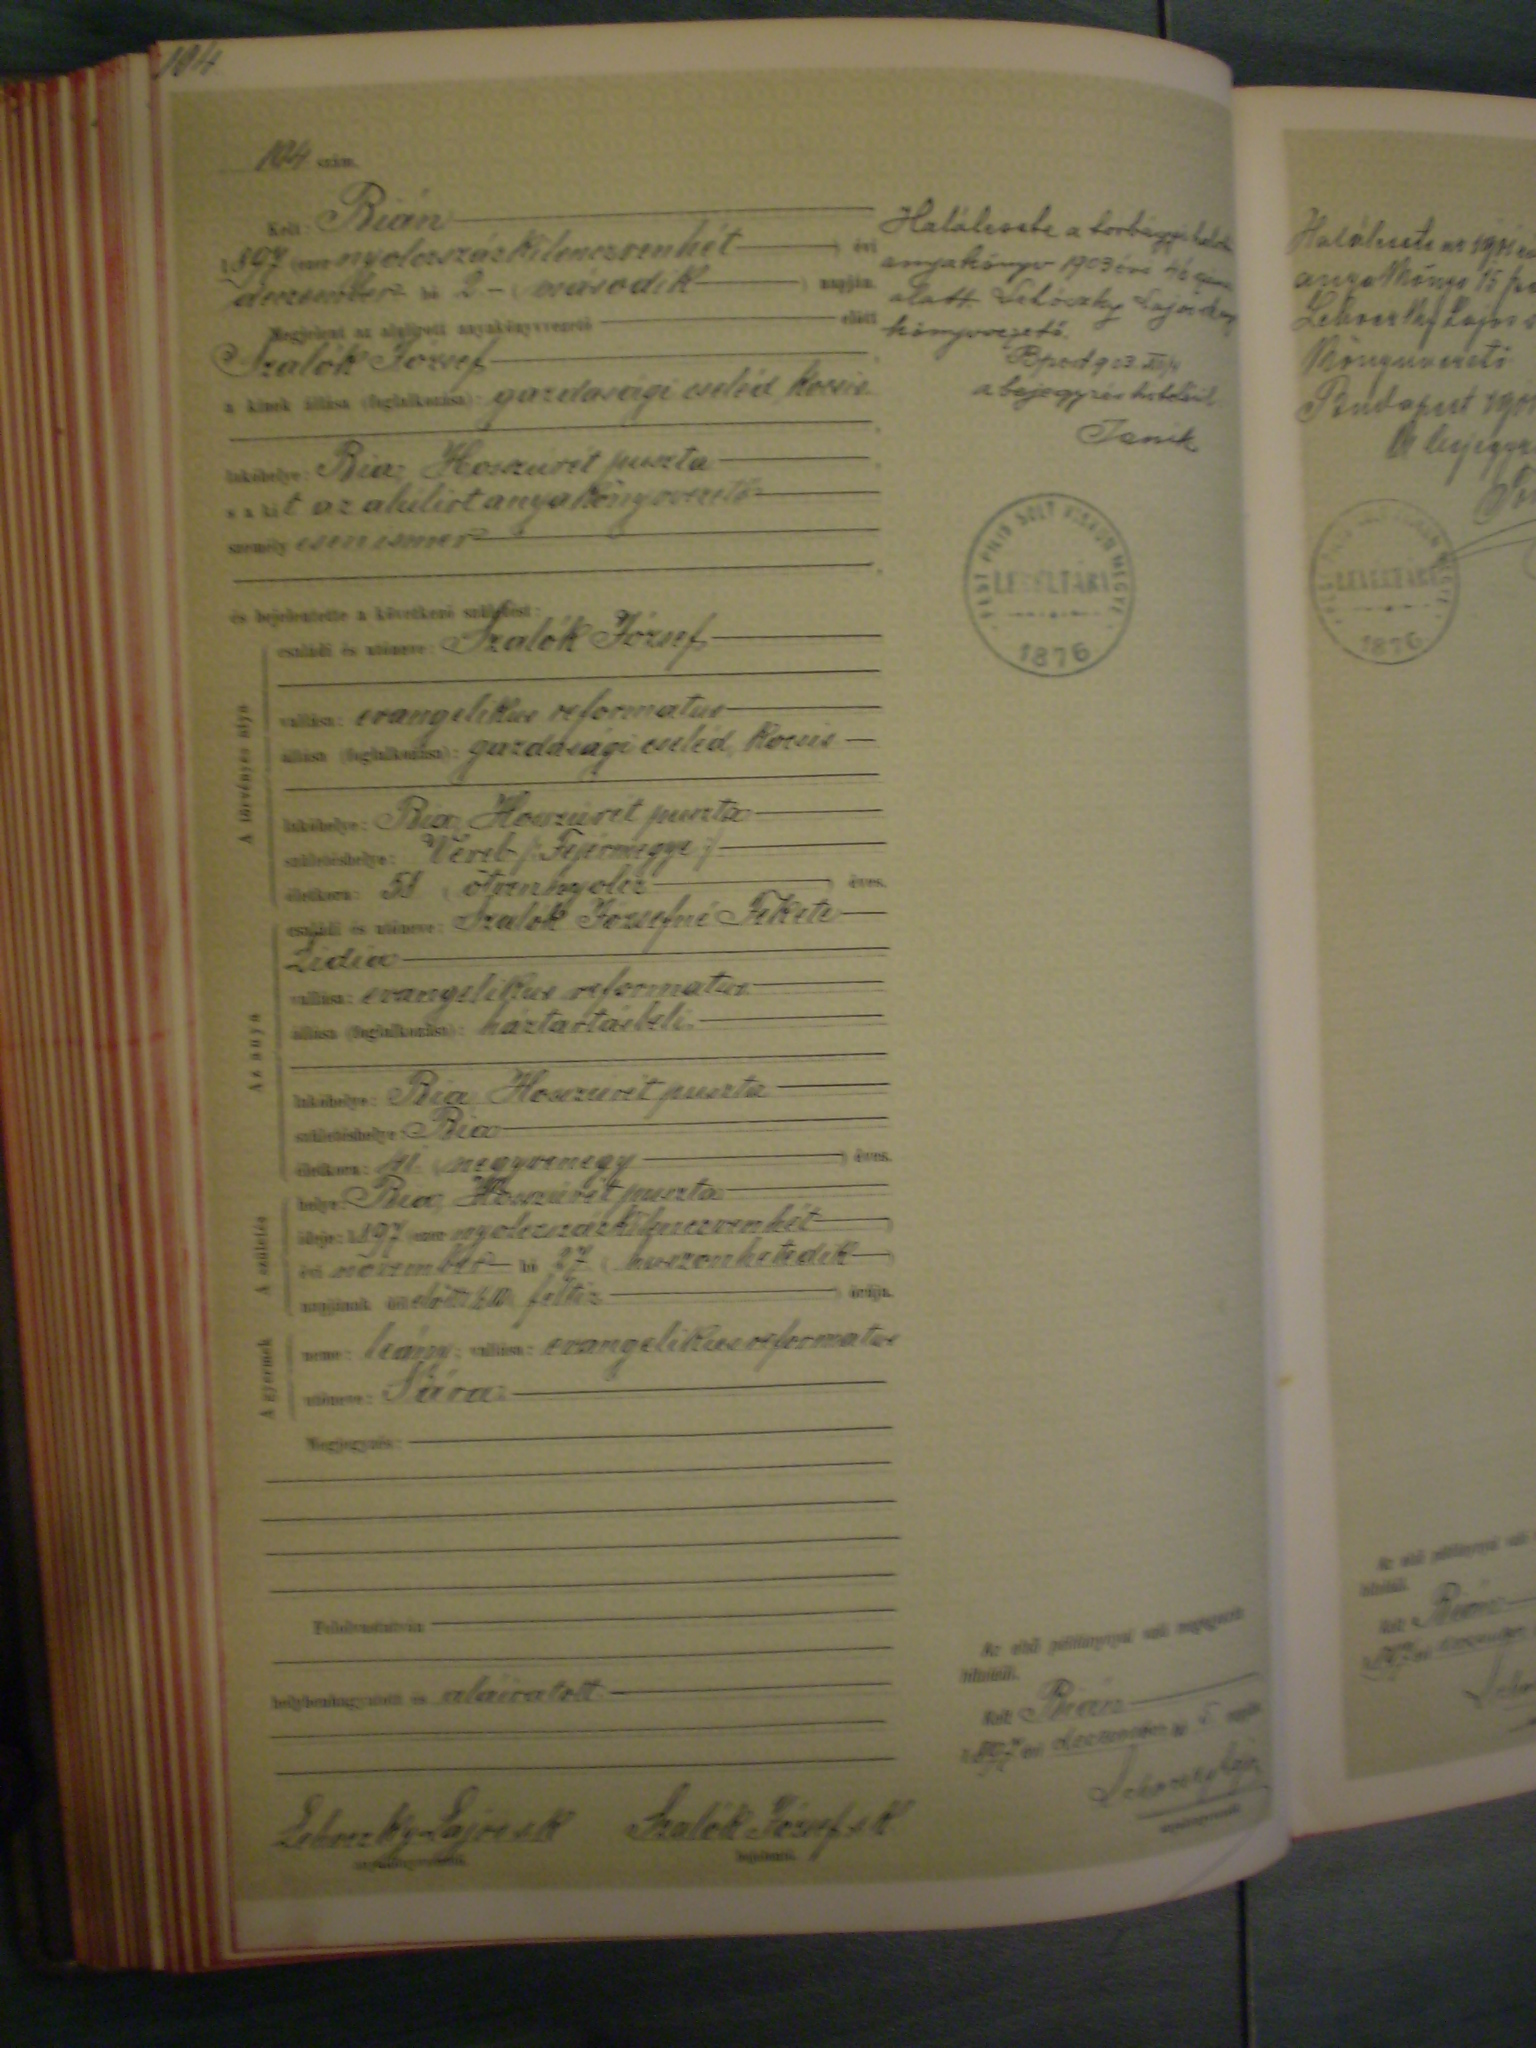 104
104 szám.
Kelt: Bián
1897 (ezer nyolczszázkilenczvenhét) évi
deczember hó 2.- (második) napján.
Megjelent az alulirott anyakönyvvezető előtt
Szalók József
a kinek állása (foglalkozása): gazdasági cseléd, kocsis
lakóhelye: Bia, Hosszúrét puszta
s a kit az alulirt anyakönyvvezető
személyesen ismer
és bejelentette a következő születést:
A törvényes atya
családi és utóneve: Szalók József
vallása: evangelikus reformatus
állása (foglalkozása): gazdasági cseléd, kocsis
lakóhelye: Bia, Hosszúrét puszta
születéshelye: Vereb /: Fejérmegye :/
életkora: 58 (ötvennyolcz) éves.
Az anya
családi és utóneve: Szalók Józsefné Fekete
Lidia
vallása: evangelikus reformatus
állása (foglalkozása): háztartásbeli
lakóhelye: Bia, Hosszúrét puszta
születéshelye: Bia
életkora: 41 (negyvenegy) éves.
A születés
helye: Bia, Hosszúrét puszta
ideje: 1897 (ezer nyolczszázkilenczvenhét)
évi november hó 27 (huszonhetedik)
napjának délelőtti féltiz órája.
A gyermek
neme: leány; vallása: evangelikus reformatus
utóneve: Sára
Megjegyzés:
Felolvastatván
helybenhagyatott és aláiratott
Lehoczky Lajos sk
anyakönyvvezető.
Szalók József sk
bejelentő.
Halálesete a torbágyi halotti
anyakönyv 1903 évi
alatt. Lehoczky Lajos anya
könyvvezető.
Bpest 903
a bejegyzés hiteléül
Janik
PEST PILIS SOLT KISKUN MEGYE
LEVÉLTÁRA
1876
Az első példánynyal való megegyezését
hitelesíti.
Kelt Bián
1897 évi deczember hó 5. napján
Lehoczky Lajos
anyakönyvvezető
Halálesete az
anyakönyv 15
Lehoczky Lajos
könyvvezető
Budapest
A bejegyzés
LEVÉLTÁRA
1876
Az első példánynyal való
hitelesíti.
Kelt Bián
1897 évi deczember